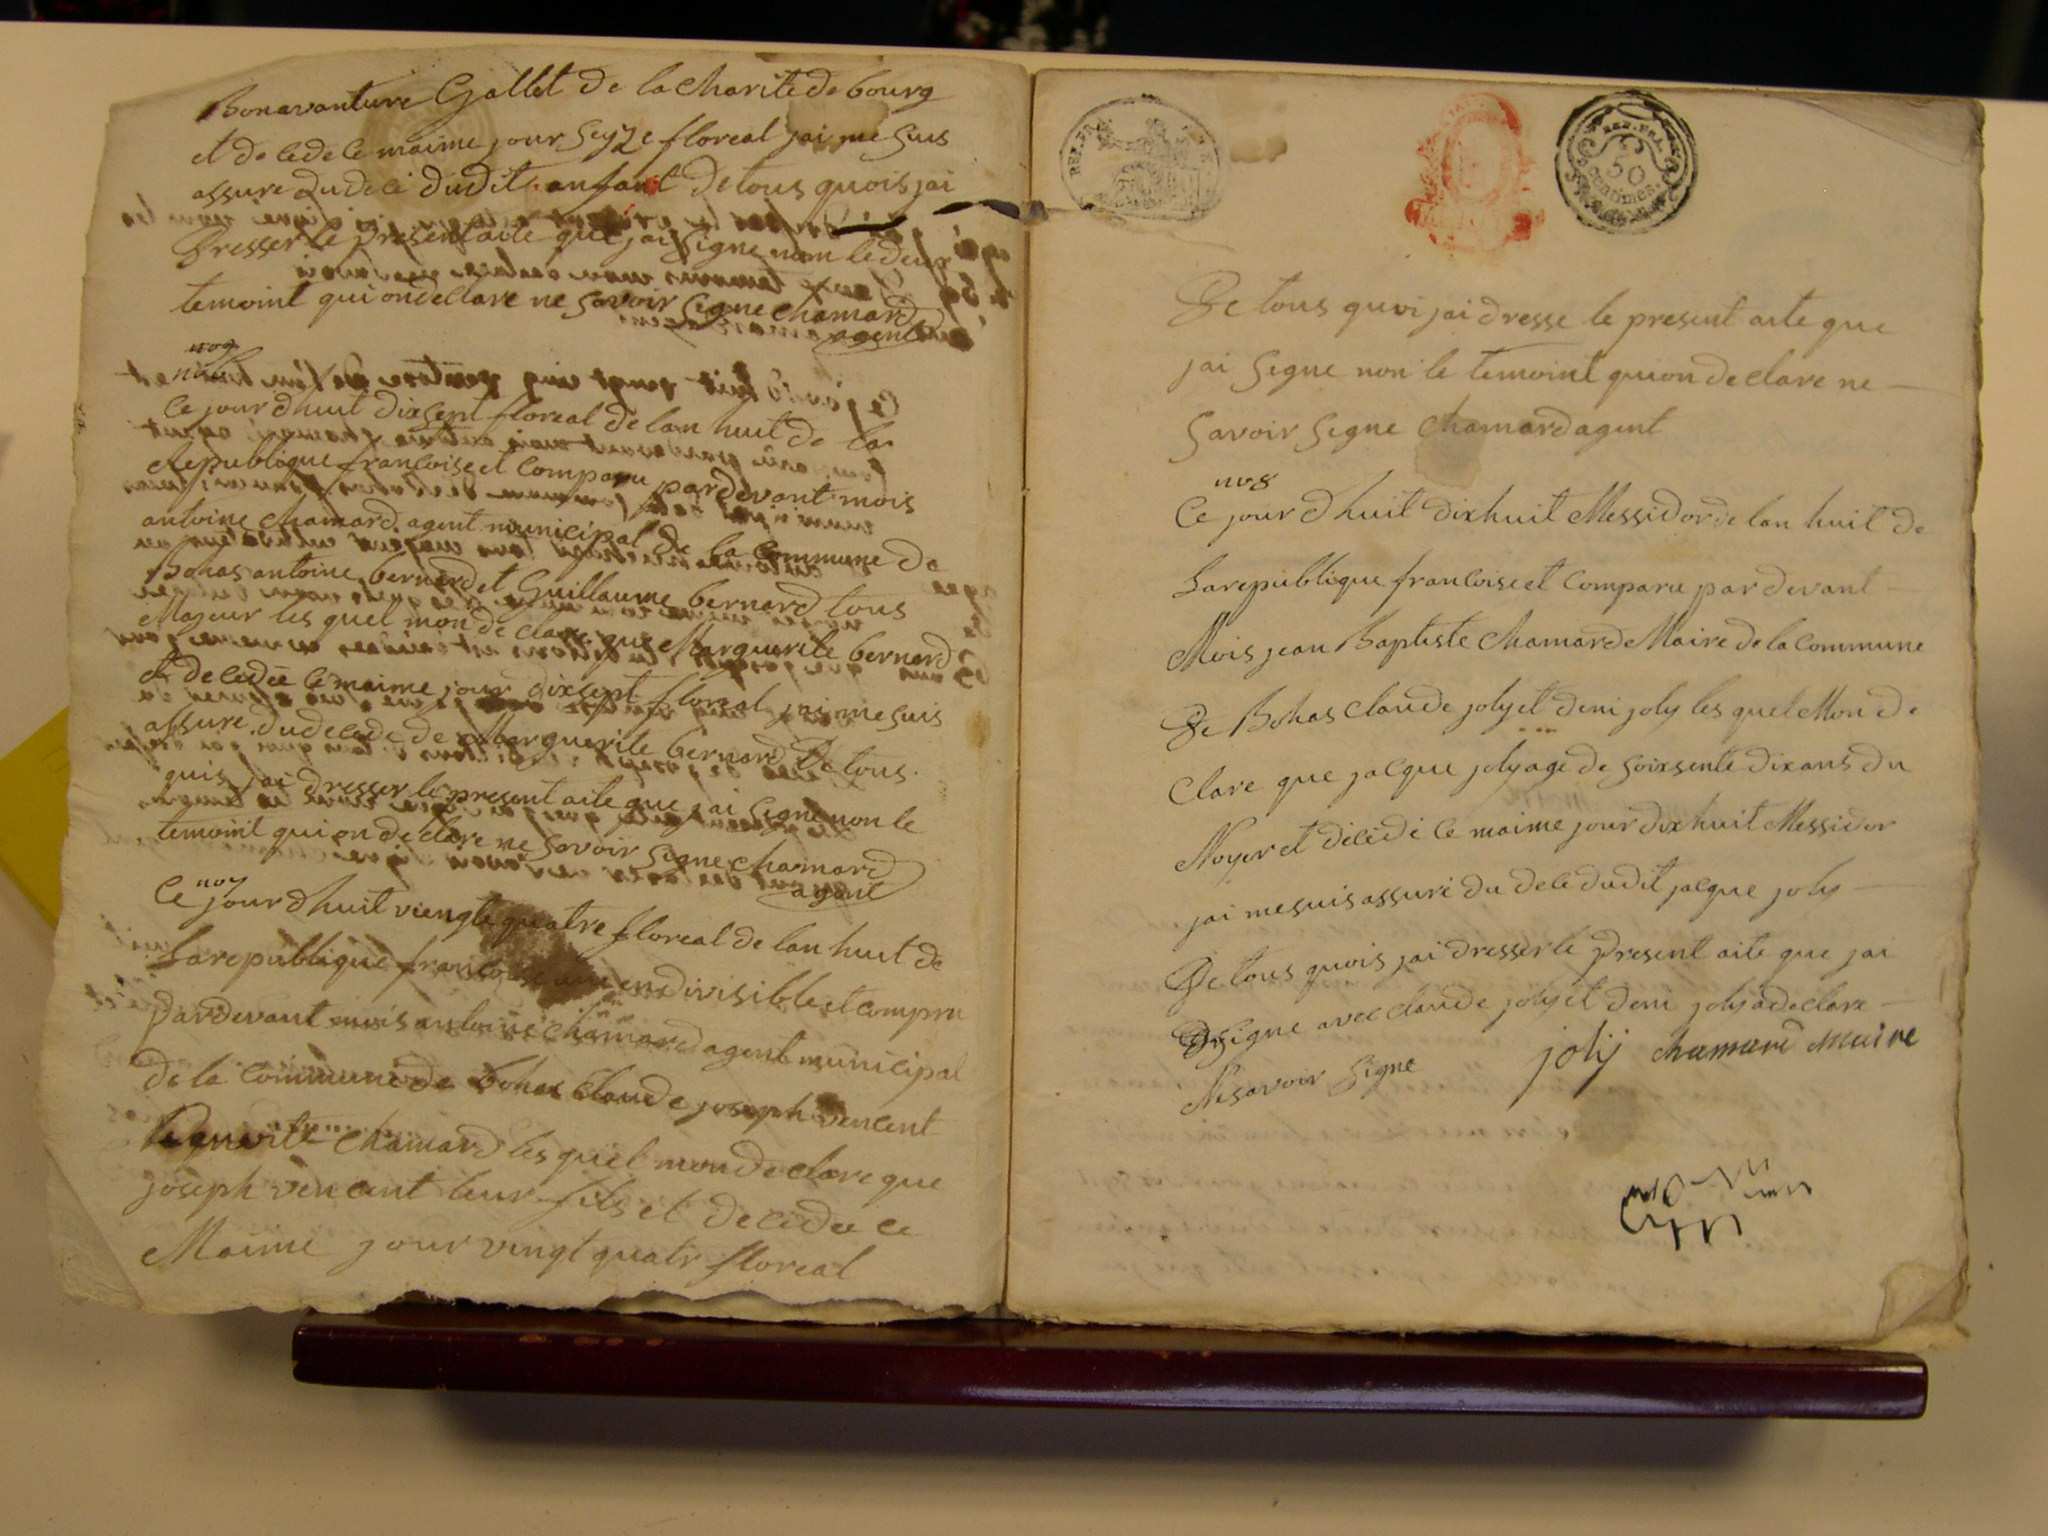 Bonavanture Gallet de la charite de bourg
et de cede ce maime jour seyze floreal jai me suis
assure du dece dudit anfant de tous quois jai
Dresser le present aite que jai signe nom le deux
temoint qui on declare ne savoir signe chamard
agent
no 9
Ce jour d huit dixsept floreal de lan huit de la
Republique francoise et comparu par devant mois
antoine chamard agent municipal de la commune de
Bohas antoine bernerd et Guillaume bernerd tous
Majeur les quel mon de clare que Marguerite bernerd
et de cedée ce maime jour dixsept floreal jai me suis
assure du decede de Marguerite bernerd De tous
quis jai dresser le present aite que jai signe non le
temoint qui on de clare ne savoir signe chamard
agent
no 7
Ce jour d huit viengte quatre floreal de lan huit de
La republique francoise une endivisible et comparu
par devant mois antoine chamard agent municipal
de la commune de bohas Claude joseph vencent
chamard les quel mon de clare que
joseph vencent leur fils et decede ce
Maime jour vingt quatr floreal
REP.FRA
REP. FRA.
50
centimes.
De tous quoi jai dresse le present aite que
jai signe non le temoint qui on de clare ne
savoir signe chamard agent
no 8
Ce jour d huit dix huit Messidor de lan huit de
La republique francoise et comparu par devant
Mois jean Baptiste chamard Maire de la commune
De Bohas claude joly et deni joly les quel Mon de
Clare que jacque joly age de soixsente dix ans du
Noyer et décédé ce maime jour dix huit Messidor
jai me suis assuré du dece dudit jacque joly
De tous quois jai dresser le present aite que jai
signe avec claude joly et deni joly a declare
Ne savoir signe joly chamard maire